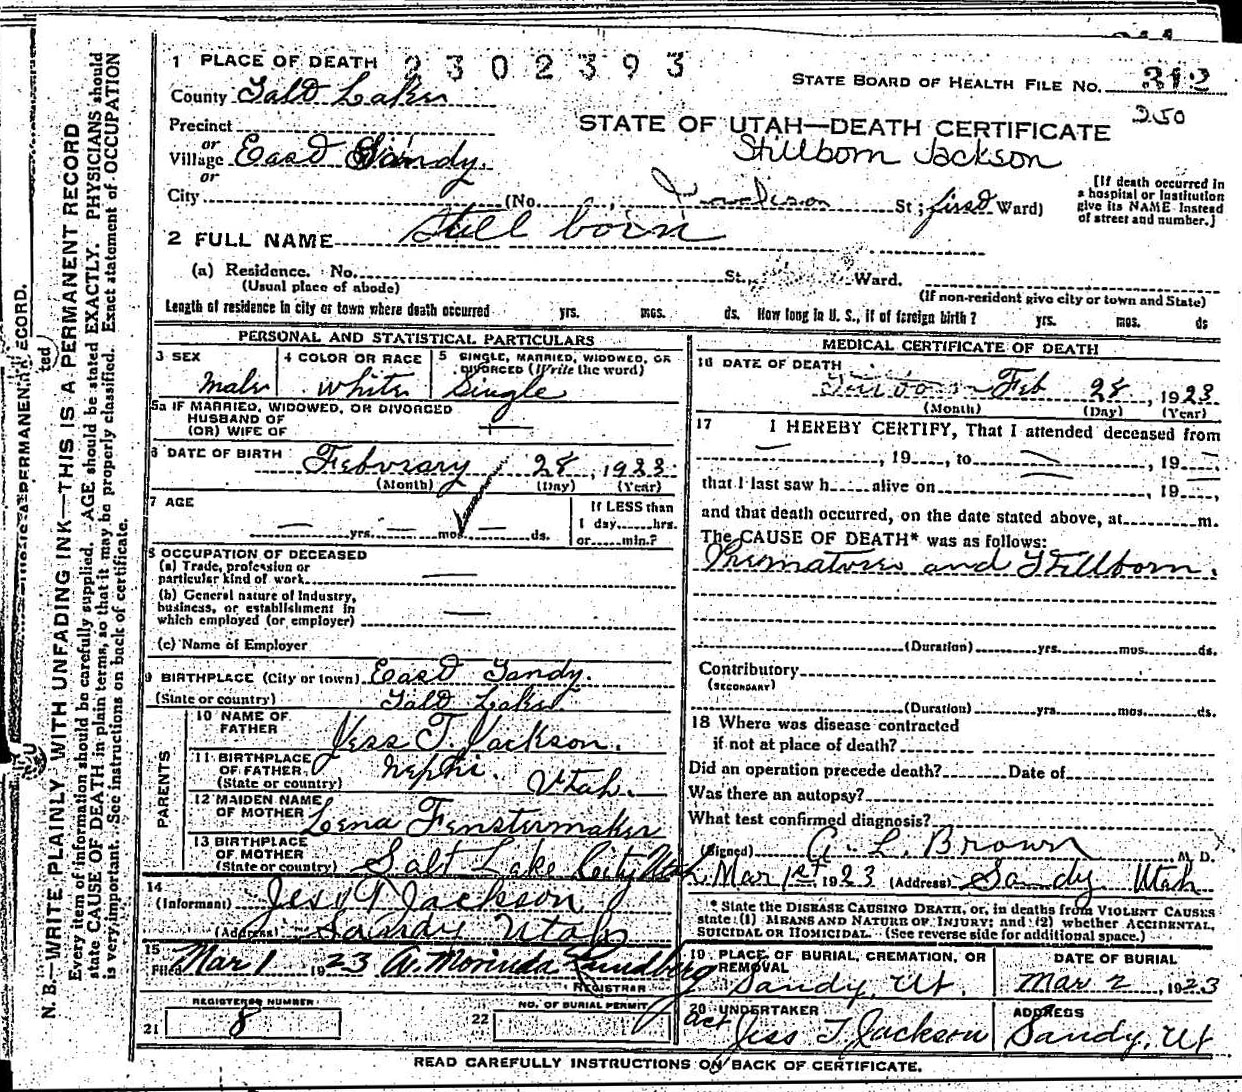 2302393
1 PLACE OF DEATH
STATE BOARD OF HEALTH FILE NO. 312
County Salt Lake
250
Precinct
STATE OF UTAH—DEATH CERTIFICATE
or
Village East Sandy.
Stillborn Jackson
or
City (No. Jackson St; first Ward)
[If death occurred in a hospital or institution give its NAME instead of street and number.]
2 FULL NAME Still born
(a) Residence. No. St. Ward.
(Usual place of abode)
(If non-resident give city or town and State)
Length of residence in city or town where death occurred yrs. mos. ds. How long in U. S., if of foreign birth? yrs. mos. ds
PERSONAL AND STATISTICAL PARTICULARS
3 SEX
male
4 COLOR OR RACE
white
5 SINGLE, MARRIED, WIDOWED, OR DIVORCED (Write the word)
Single
5a IF MARRIED, WIDOWED, OR DIVORCED
HUSBAND OF
(OR) WIFE OF
6 DATE OF BIRTH
February 28, 1923
(Month) (Day) (Year)
7 AGE
yrs. mos. ds.
If LESS than
1 day, hrs.
or min.?
8 OCCUPATION OF DECEASED
(a) Trade, profession or
particular kind of work
(b) General nature of Industry,
business, or establishment in
which employed (or employer)
(c) Name of Employer
9 BIRTHPLACE (City or town) East Sandy.
(State or country) Salt Lake.
PARENTS
10 NAME OF
FATHER Jess T. Jackson.
11 BIRTHPLACE
OF FATHER,
(State or country) Nephi. Utah.
12 MAIDEN NAME
OF MOTHER Lena Fenstermaker
13 BIRTHPLACE
OF MOTHER
(State or country) Salt Lake City Utah
14
(Informant) Jess T Jackson
(Address) Sandy Utah
15
Filed Mar 1 1923 A. Morinda Lundberg
REGISTRAR
REGISTERED NUMBER
21 8
NO. OF BURIAL PERMIT
22
MEDICAL CERTIFICATE OF DEATH
16 DATE OF DEATH
Feb 28, 1923
(Month) (Day) (Year)
17 I HEREBY CERTIFY, That I attended deceased from
, 19 , to , 19
that I last saw h alive on , 19 ,
and that death occurred, on the date stated above, at m.
The CAUSE OF DEATH* was as follows:
Premature and Stillborn.
(Duration) yrs. mos. ds.
Contributory
(SECONDARY)
(Duration) yrs. mos. ds.
18 Where was disease contracted
if not at place of death?
Did an operation precede death? Date of
Was there an autopsy?
What test confirmed diagnosis?
(Signed) A. L. Brown M. D.
Mar 1st 1923 (Address) Sandy Utah
* State the DISEASE CAUSING DEATH, or, in deaths from VIOLENT CAUSES
state (1) MEANS AND NATURE OF INJURY; and (2) whether ACCIDENTAL,
SUICIDAL OR HOMICIDAL. (See reverse side for additional space.)
19 PLACE OF BURIAL, CREMATION, OR
REMOVAL
Sandy, Ut.
DATE OF BURIAL
Mar 2, 1923
20 UNDERTAKER
act Jess T. Jackson
ADDRESS
Sandy, Ut
READ CAREFULLY INSTRUCTIONS ON BACK OF CERTIFICATE.
N. B.—WRITE PLAINLY WITH UNFADING INK—THIS IS A PERMANENT RECORD
Every item of information should be carefully supplied. AGE should be stated EXACTLY. PHYSICIANS should
state CAUSE OF DEATH in plain terms, so that it may be properly classified. Exact statement of OCCUPATION
is very important. See instructions on back of certificate.